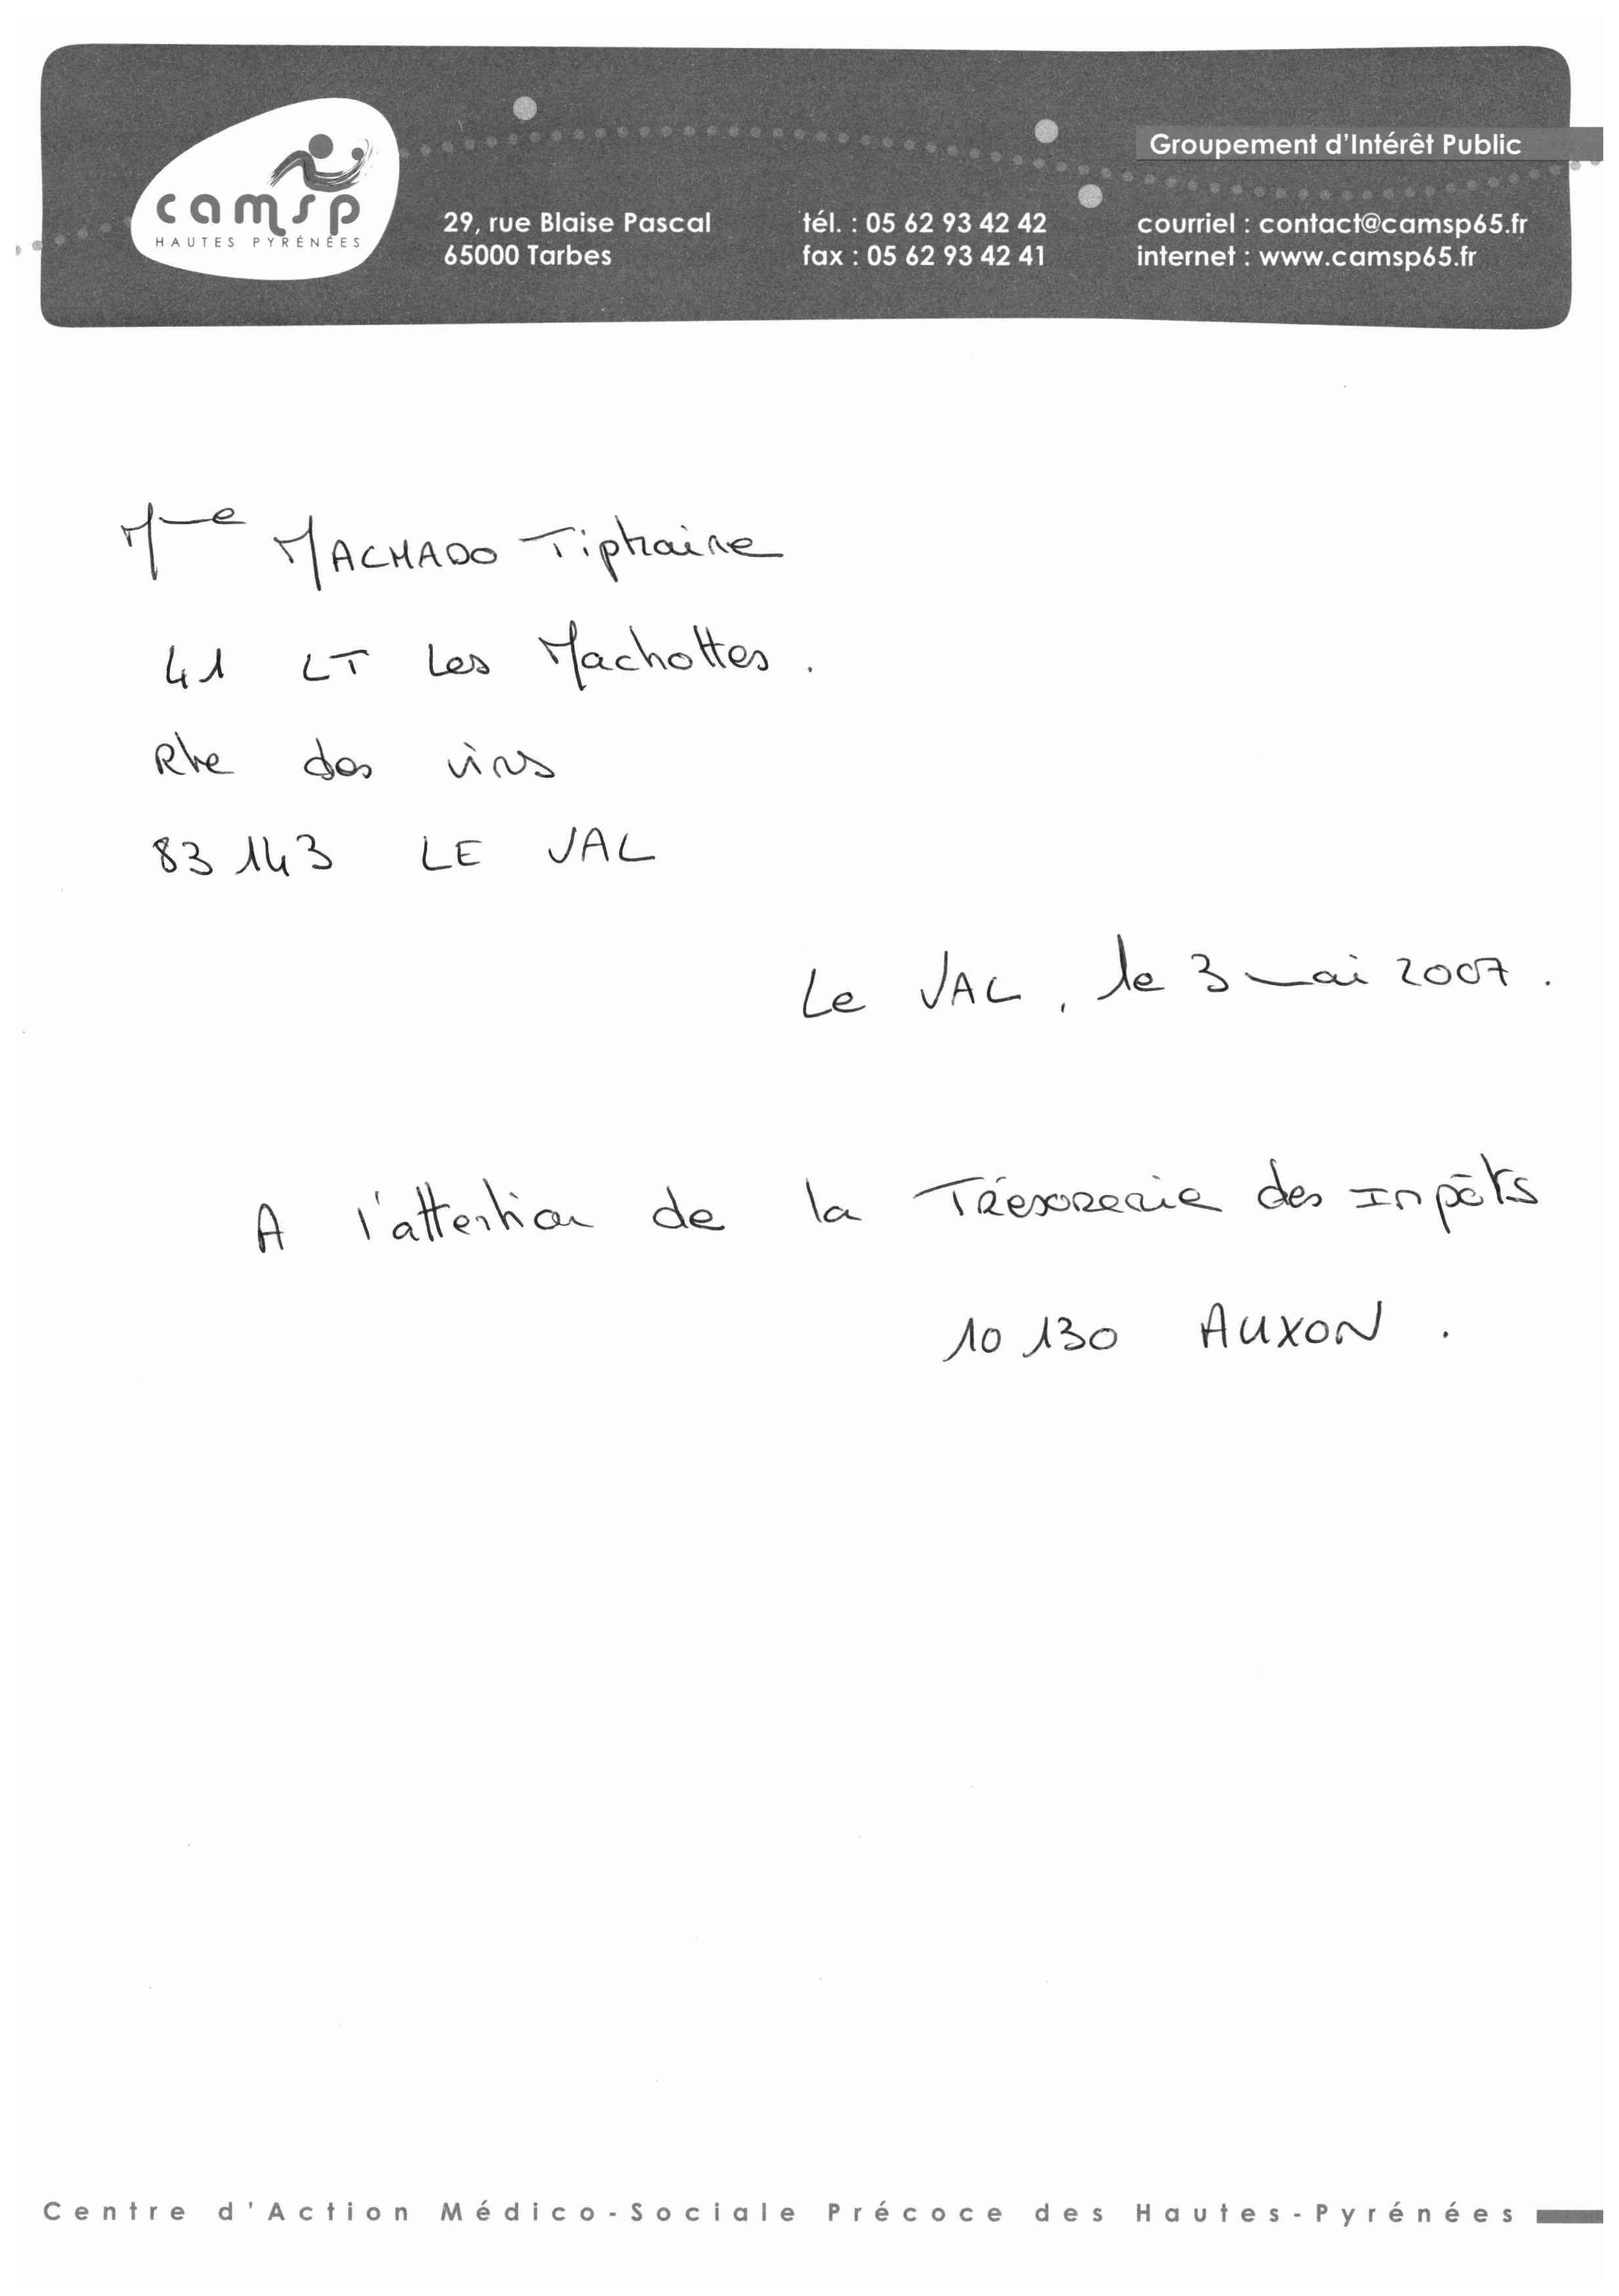 camsp
HAUTES PYRÉNÉES
Groupement d'Intérêt Public
29, rue Blaise Pascal
65000 Tarbes
tél. : 05 62 93 42 42
fax : 05 62 93 42 41
courriel : contact@camsp65.fr
internet : www.camsp65.fr
Mme MACHADO Tiphaine
41 LT Les Machottes.
Rte des vins
83 143 LE VAL
Le VAL, le 3 mai 2007.
A l'attention de la Trésorerie des Impôts
10 130 AUXON.
Centre d'Action Médico-Sociale Précoce des Hautes-Pyrénées